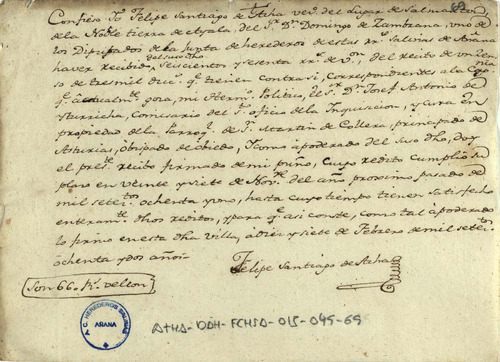 Confieso Yo Felipe Santiago de Etcha vec.o del Lugar de Salman
de la Noble tierra de Ayala, del S.r D.n Domingo de Zambrana, uno de
los Diputados de la Junta de herederos de estas r.s Salinas de Añana
haver recibido, seiscientos y sesenta rr.s de v.on, del redito de un
so de tres mil duc.s q.e tienen contra si, correspondientes a la Cap.
q.e actualm.te goza, mi Herm.o Politico, el S.r D.n Josef Antonio de
Yturricha, Comisario del S.to oficio de la Inquisicion, y Cura en
propiedad de la Parroq.l de S.n Martin de Collera, principado de
Asturias, obispado de obiedo, Y como apoderado del suso dho, doy
el pres.te recibo firmado de mi puño, cuyo redito cumplio su
plazo en veinte y siete de Nov.re del año proximo pasado de
mil setec.os ochenta y uno, hasta cuyo tiempo tienen satisfecho
enteram.te dhos reditos, y para q.e asi conste, como tal apoderado
lo firmo en esta dha villa, a diez y siete de Febrero de mil setec.tos
ochenta y dos años
Felipe Santiago de Etcha
Son 660 R.s vellon
A.C. HEREDEROS SALINAS
AÑANA
ATHA-DAH-FCHSA-015-045-65